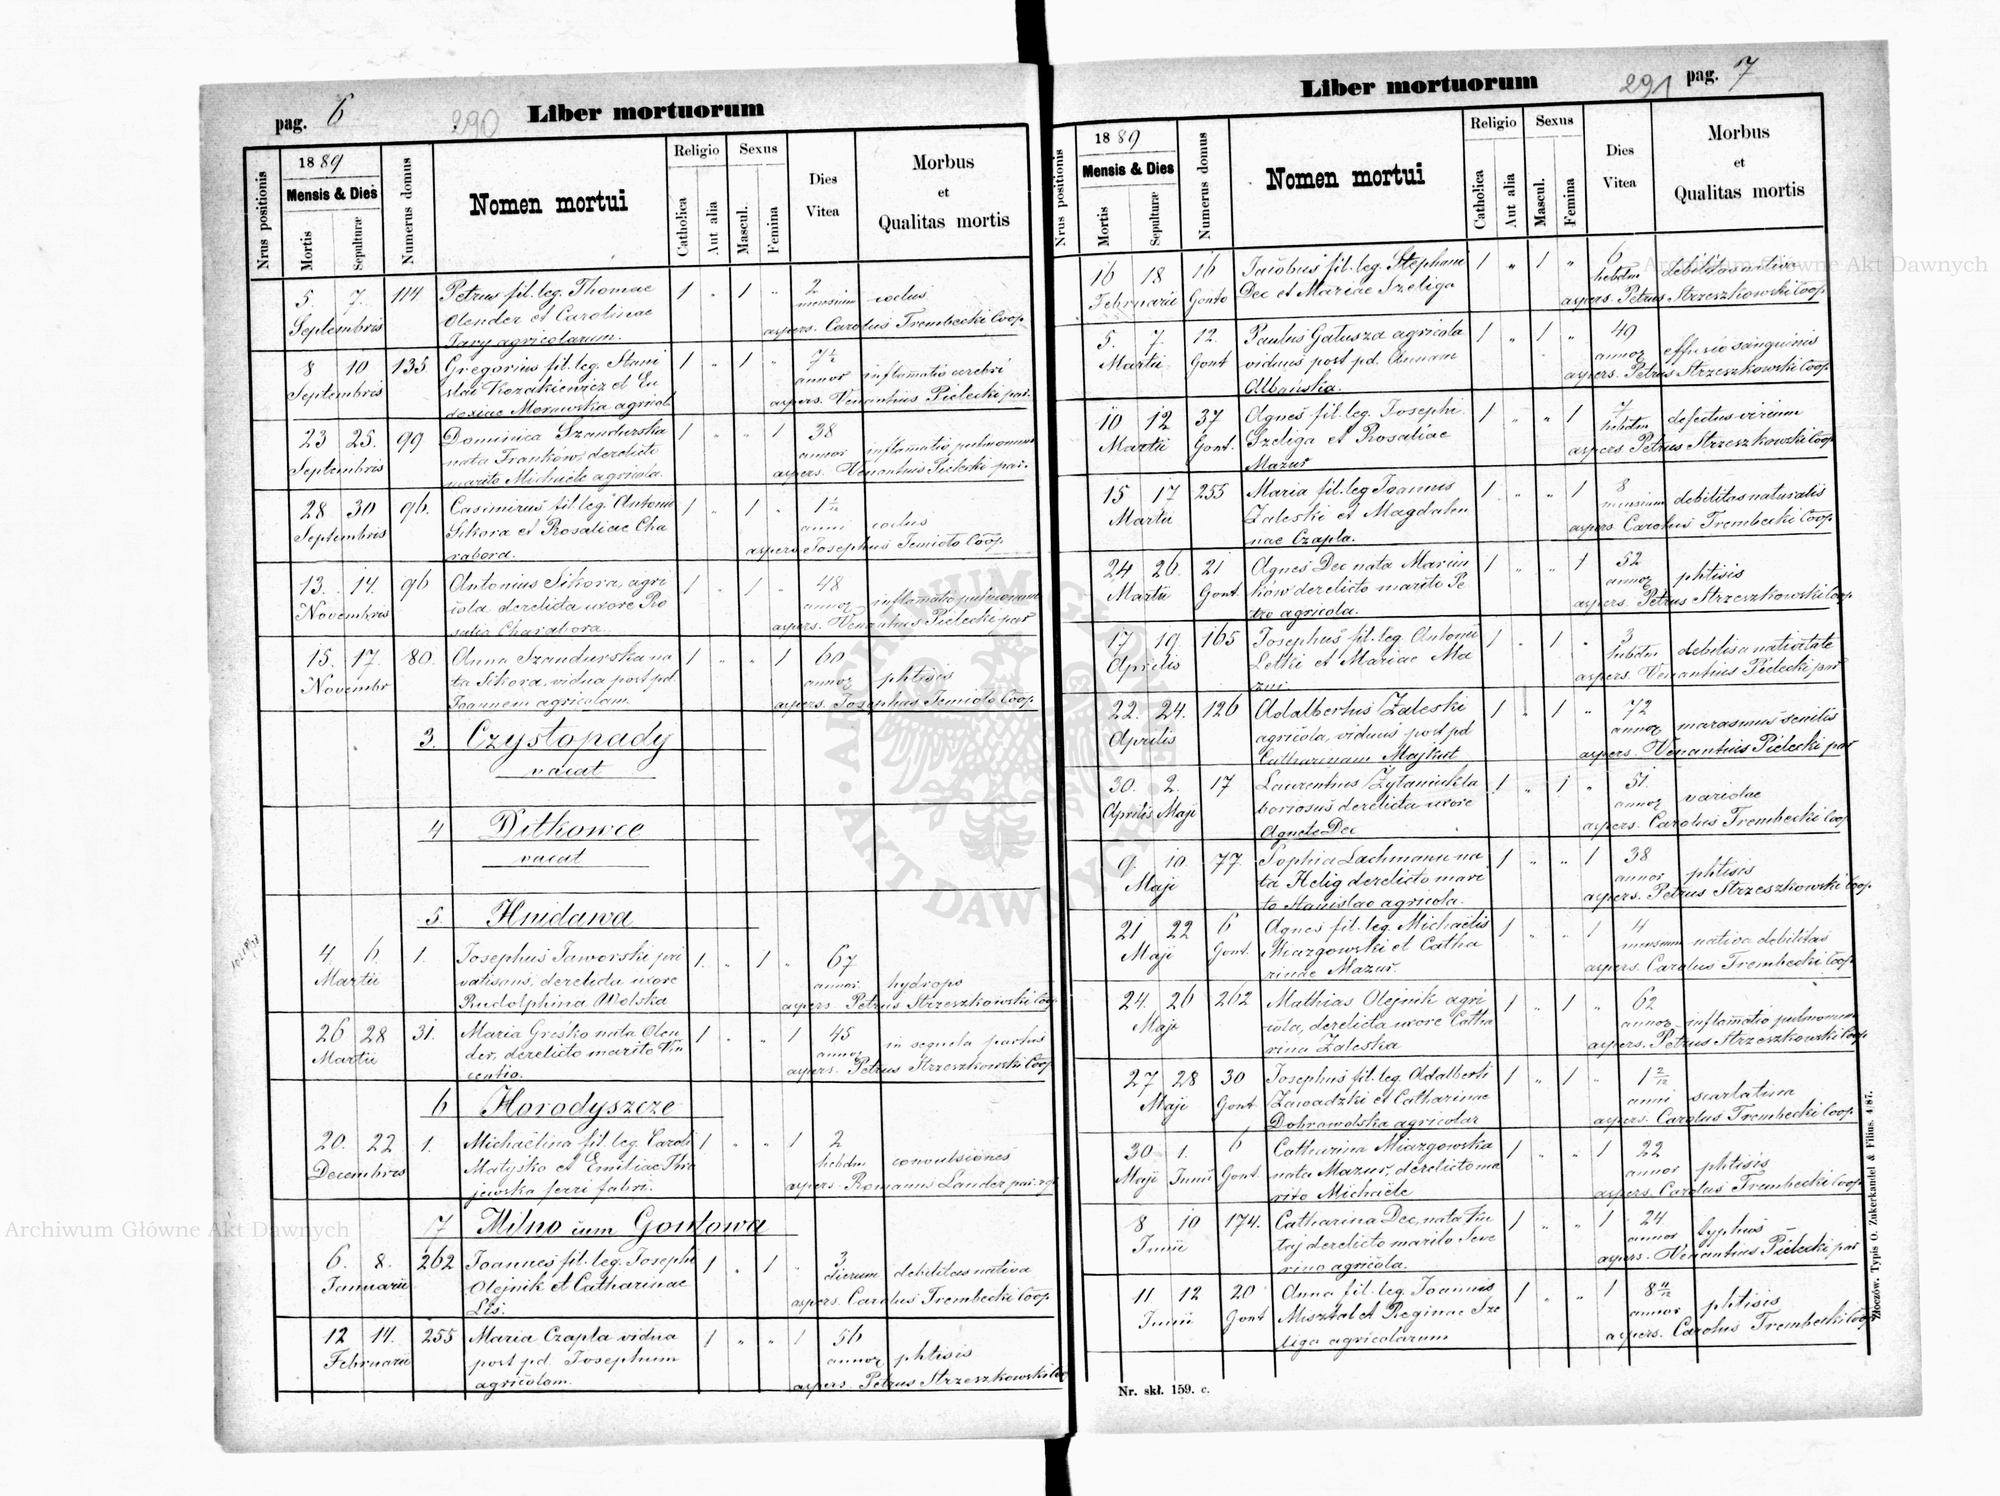 pag. 6
290
Liber mortuorum
Nrus positionis
1889
Mensis & Dies
Mortis
Sepulturæ
Numerus domus
Nomen mortui
Religio
Catholica
Aut alia
Sexus
Mascul.
Femina
Dies Vitea
Morbus et Qualitas mortis
5 7. 114 Petrus fil. leg. Thomae 1 " 1 " 2
Septembris Olender et Carolinae mensium
Jary agricolarum. aspers. Carolus Trembecki Coop
8 10 135 Gregorius fil. leg. Stani 1 1 " 7½
Septembris slai Kozakiewicz et Eu annor inflam̄atio cerebri
doxiae Morawska agricol. aspers. Venantius Pielecki par.
23 25. 99 Dominica Szandurska 1 " " 1 38
Septembris nata Franków, derelicto annor inflam̄atio pulmonum
marito Michaële agricola. aspers. Venantius Pielecki par.
28 30 96. Casimirus fil. leg. Antonii 1 " 1 " 1½
Septembris Sikora et Rosaliae Cha anni
rabora. aspers. Josephus Temioto Coop
13. 14. 96 Antonius Sikora, agri 1 " 1 " 48
Novembris cola derelicta uxore Ro annor inflam̄atio pulmonum
salia Charabora. aspers. Venantius Pielecki par
15. 17. 80. Anna Szandurska na 1 " " 1 60
Novembr ta Sikora, vidua post pd. annor phtisis
Joannem agricolam. aspers. Josephus Temioto Coop
3. Czystopady
vacat
4 Ditkowce
vacat
5. Hnidawa
4. 6. 1. Josephus Jaworski pri 1. " 1 " 67
Martii vatisans, derelicta uxore annor hydrops
Rudolphina Wolska aspers. Petrus Strzeszkowski Coop
26 28 31. Maria Greśko nata Olen 1 " " 1 45
Martii der, derelicto marito Vin annor in sequela partus
centio. aspers. Petrus Strzeszkowski Coop
6 Horodyszcze
20. 22 1. Michaëlina fil. leg. Caroli 1 " " 1 2
Decembris Matyśko et Emiliae Thro hebdm convulsiones
jewska ferri fabri. aspers. Romanus Lander par. rgr
7 Milno cum Gontowa
6. 8. 262 Joannes fil. leg. Josephi 1 " 1 " 3
Januarii Olejnik et Catharinae dierum debilitas nativa
Lis. aspers. Carolus Trembecki Coop
12 14. 255 Maria Czapla vidua 1 " " 1 56
Februarii post pd. Josephum annor phtisis
agricolam. aspers. Petrus Strzeszkowski Coop
Liber mortuorum
291
pag. 7
Nrus positionis
1889
Mensis & Dies
Mortis
Sepulturæ
Numerus domus
Nomen mortui
Religio
Catholica
Aut alia
Sexus
Mascul.
Femina
Dies Vitea
Morbus et Qualitas mortis
16 18 16 Jacobus fil. leg. Stephani 1 " 1 " 6
Februarii Gonto Dec et Mariae Szeliga hebdm debilitas nativa
aspers. Petrus Strzeszkowski Coop
5. 7. 12. Paulus Gałusza agricola 1 " 1 " 49
Martii Gont viduus post pd. Annam annor effusio sanguinis
Albańska. aspers. Petrus Strzeszkowski Coop
10 12 37 Agnes fil. leg. Josephi 1 " " 1 7
Martii Gont. Szeliga et Rosaliae hebdm defectus virium
Mazur aspers. Petrus Strzeszkowski Coop
15 17 255 Maria fil. leg Joannis 1 " " 1 8
Martii Zaleski et Magdale mensium debilitas naturalis
nae Czapla. aspers. Carolus Trembecki Coop
24 26. 21 Agnes Dec nata Marcin 1 " " 1 52
Martii Gont. ków derelicto marito Pe annor phtisis
tro agricola. aspers. Petrus Strzeszkowski Coop
17 19. 165 Josephus fil. leg. Antonii 1 " 1 " 3
Aprilis Letki et Mariae Ma hebdm debilis a nativitate
zur. aspers. Venantius Pielecki par
22. 24. 126 Adalbertus Zaleski 1 " 1 " 72
Aprilis agricola, viduus post pd annor marasmus senilis
Catharinam Majkut aspers. Venantius Pielecki par
30. 2. 17 Laurentius Żytaniuk la 1 " 1 " 51.
Aprilis Maji boriosus derelicta uxore annor variolae
Agnete Dec aspers. Carolus Trembecki Coop
9. 10. 77. Sophia Lachmann na 1 " " 1 38
Maji ta Helig derelicto mari annor phtisis
to Stanislao agricola. aspers. Petrus Strzeszkowski Coop.
21 22 6 Agnes fil. leg. Michaëlis 1 " " 1 4
Maji Gont. Miazgowski et Catha mensium nativa debilitas
rinae Mazur. aspers. Carolus Trembecki Coop
24. 26 262 Mathias Olejnik agri 1 " 1 " 62
Maji cola, derelicta uxore Catha annor inflam̄atio pulmonum
rina Zaleska aspers. Petrus Strzeszkowski Coop
27 28 30 Josephus fil. leg. Adalberti 1 " 1 " 1 2/12
Maji Gont Zawadzki et Catharinae anni scarlatina
Dobrowolska agricolar aspers. Carolus Trembecki Coop
30 1. 6 Catharina Miazgowska 1 " " 1 22
Maji Junii Gont. nata Mazur, derelicto ma annor phtisis
rito Michaële aspers. Carolus Trembecki Coop
8 10 174. Catharina Dec, nata Ku 1 " " 1 24.
Junii taj derelicto marito Seve annor typhus
rino agricola. aspers. Venantius Pielecki par
11 12 20 Anna fil. leg. Joannis 1 " " 1 8 11/12
Junii Gont Misztal et Reginae Sze annor phtisis
liga agricolarum aspers. Carolus Trembecki Coop
Nr. skł. 159. c.
Złoczów. Typis O. Zukerkandel & Filius. 4/87.
Archiwum Główne Akt Dawnych
Archiwum Główne Akt Dawnych
ARCHIWUM GŁÓWNE AKT DAWNYCH